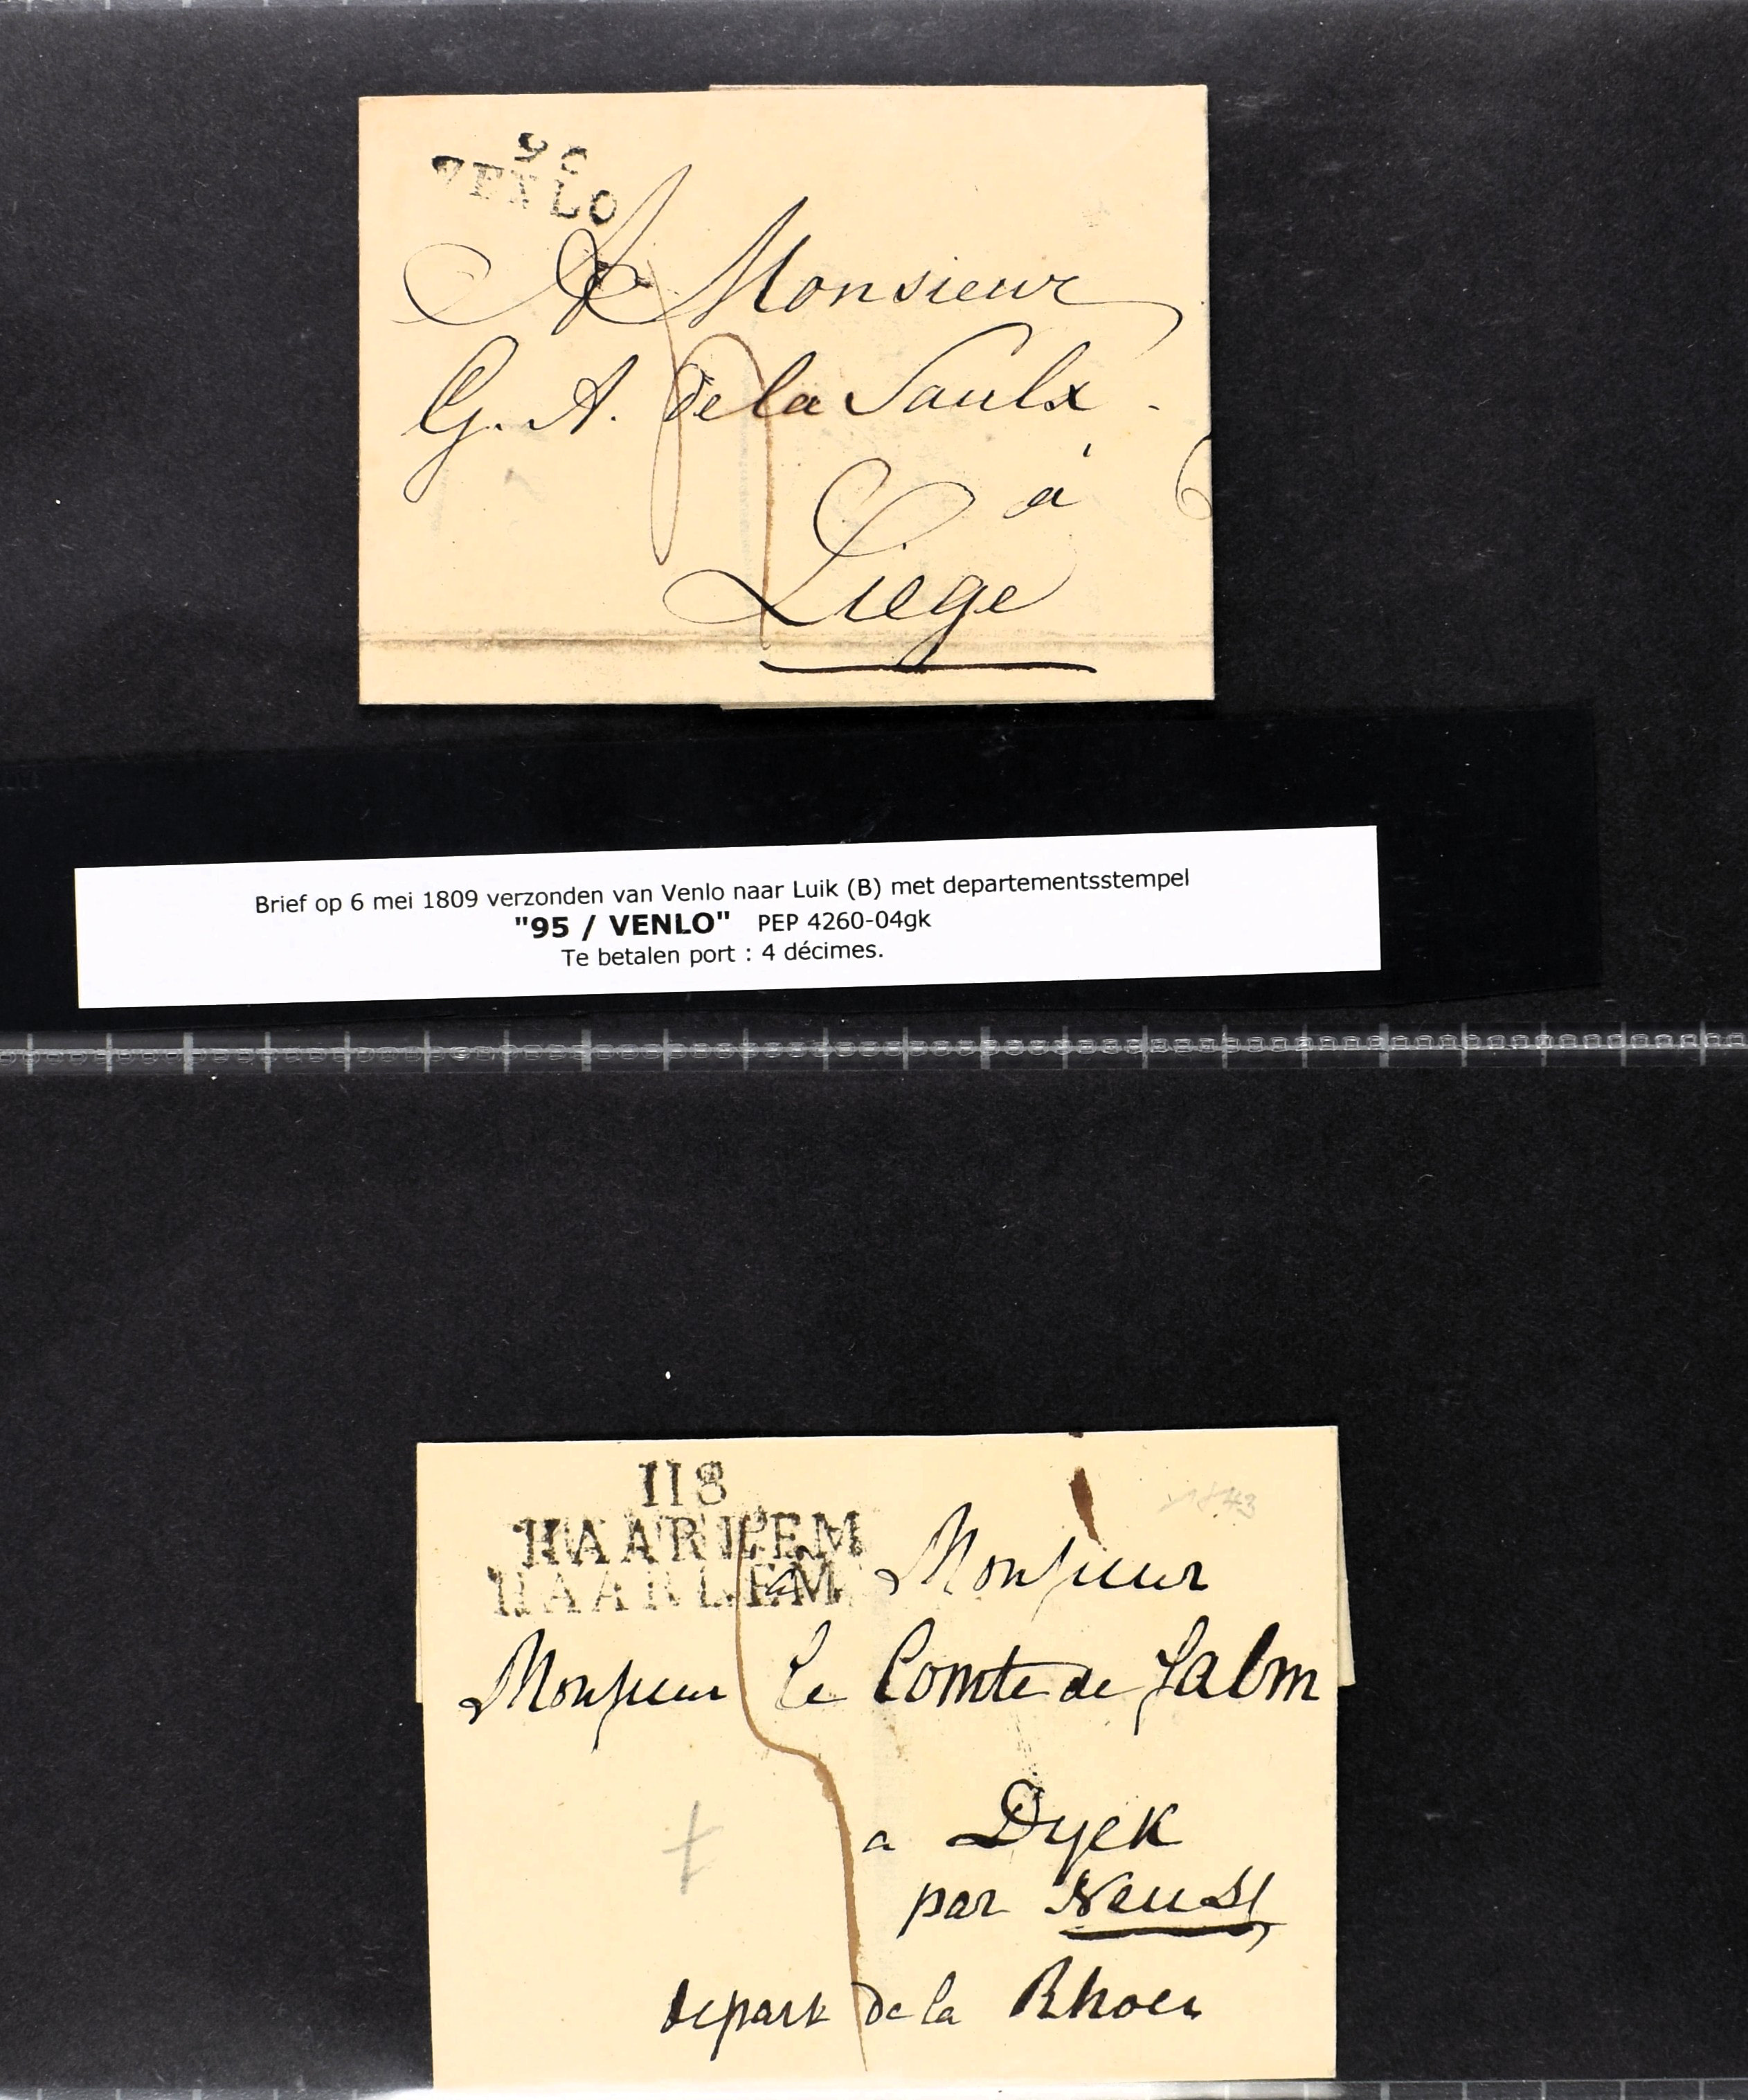 95
VENLO
A Monsieur
G. A. de la Saulx.
à
Liege
Brief op 6 mei 1809 verzonden van Venlo naar Luik (B) met departementsstempel
"95 / VENLO" PEP 4260-04gk
Te betalen port : 4 décimes.
118
HAARLEM
HAARLEM
a Monsieur
Monsieur le Comte de Salm
a Dyck
par Neuss
depart de la Rhoer